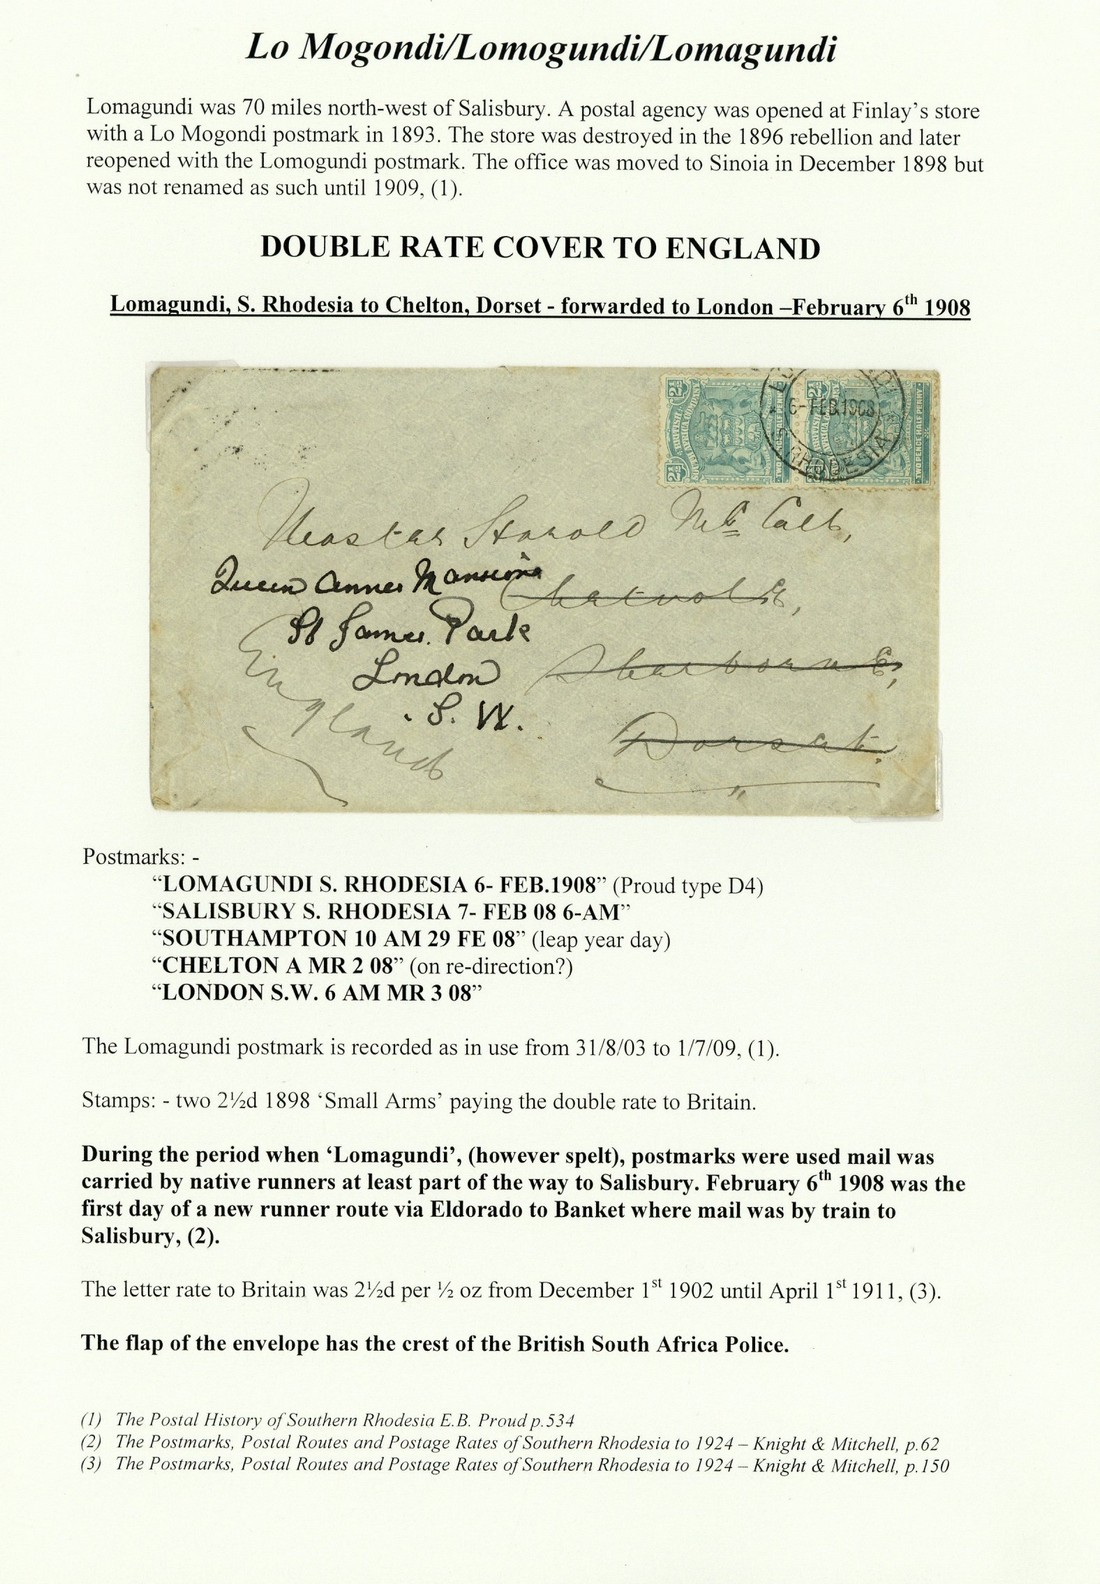 Lo Mogondi/Lomogundi/Lomagundi
Lomagundi was 70 miles north-west of Salisbury. A postal agency was opened at Finlay's store
with a Lo Mogondi postmark in 1893. The store was destroyed in the 1896 rebellion and later
reopened with the Lomogundi postmark. The office was moved to Sinoia in December 1898 but
was not renamed as such until 1909, (1).
DOUBLE RATE COVER TO ENGLAND
Lomagundi, S. Rhodesia to Chelton, Dorset - forwarded to London –February 6th 1908
2½ BRITISH SOUTH AFRICA COMPANY TWO PENCE HALF PENNY
6-FEB.1908
RHODESIA
TWO PENCE HALF PENNY
Master Harold McCall,
Queen Annes Mansions
St James. Park
London
Sherborne,
S. W.
England
Dorset.
Postmarks: -
“LOMAGUNDI S. RHODESIA 6- FEB.1908” (Proud type D4)
“SALISBURY S. RHODESIA 7- FEB 08 6-AM”
“SOUTHAMPTON 10 AM 29 FE 08” (leap year day)
“CHELTON A MR 2 08” (on re-direction?)
“LONDON S.W. 6 AM MR 3 08”
The Lomagundi postmark is recorded as in use from 31/8/03 to 1/7/09, (1).
Stamps: - two 2½d 1898 ‘Small Arms’ paying the double rate to Britain.
During the period when ‘Lomagundi’, (however spelt), postmarks were used mail was
carried by native runners at least part of the way to Salisbury. February 6th 1908 was the
first day of a new runner route via Eldorado to Banket where mail was by train to
Salisbury, (2).
The letter rate to Britain was 2½d per ½ oz from December 1st 1902 until April 1st 1911, (3).
The flap of the envelope has the crest of the British South Africa Police.
(1) The Postal History of Southern Rhodesia E.B. Proud p.534
(2) The Postmarks, Postal Routes and Postage Rates of Southern Rhodesia to 1924 – Knight & Mitchell, p.62
(3) The Postmarks, Postal Routes and Postage Rates of Southern Rhodesia to 1924 – Knight & Mitchell, p.150